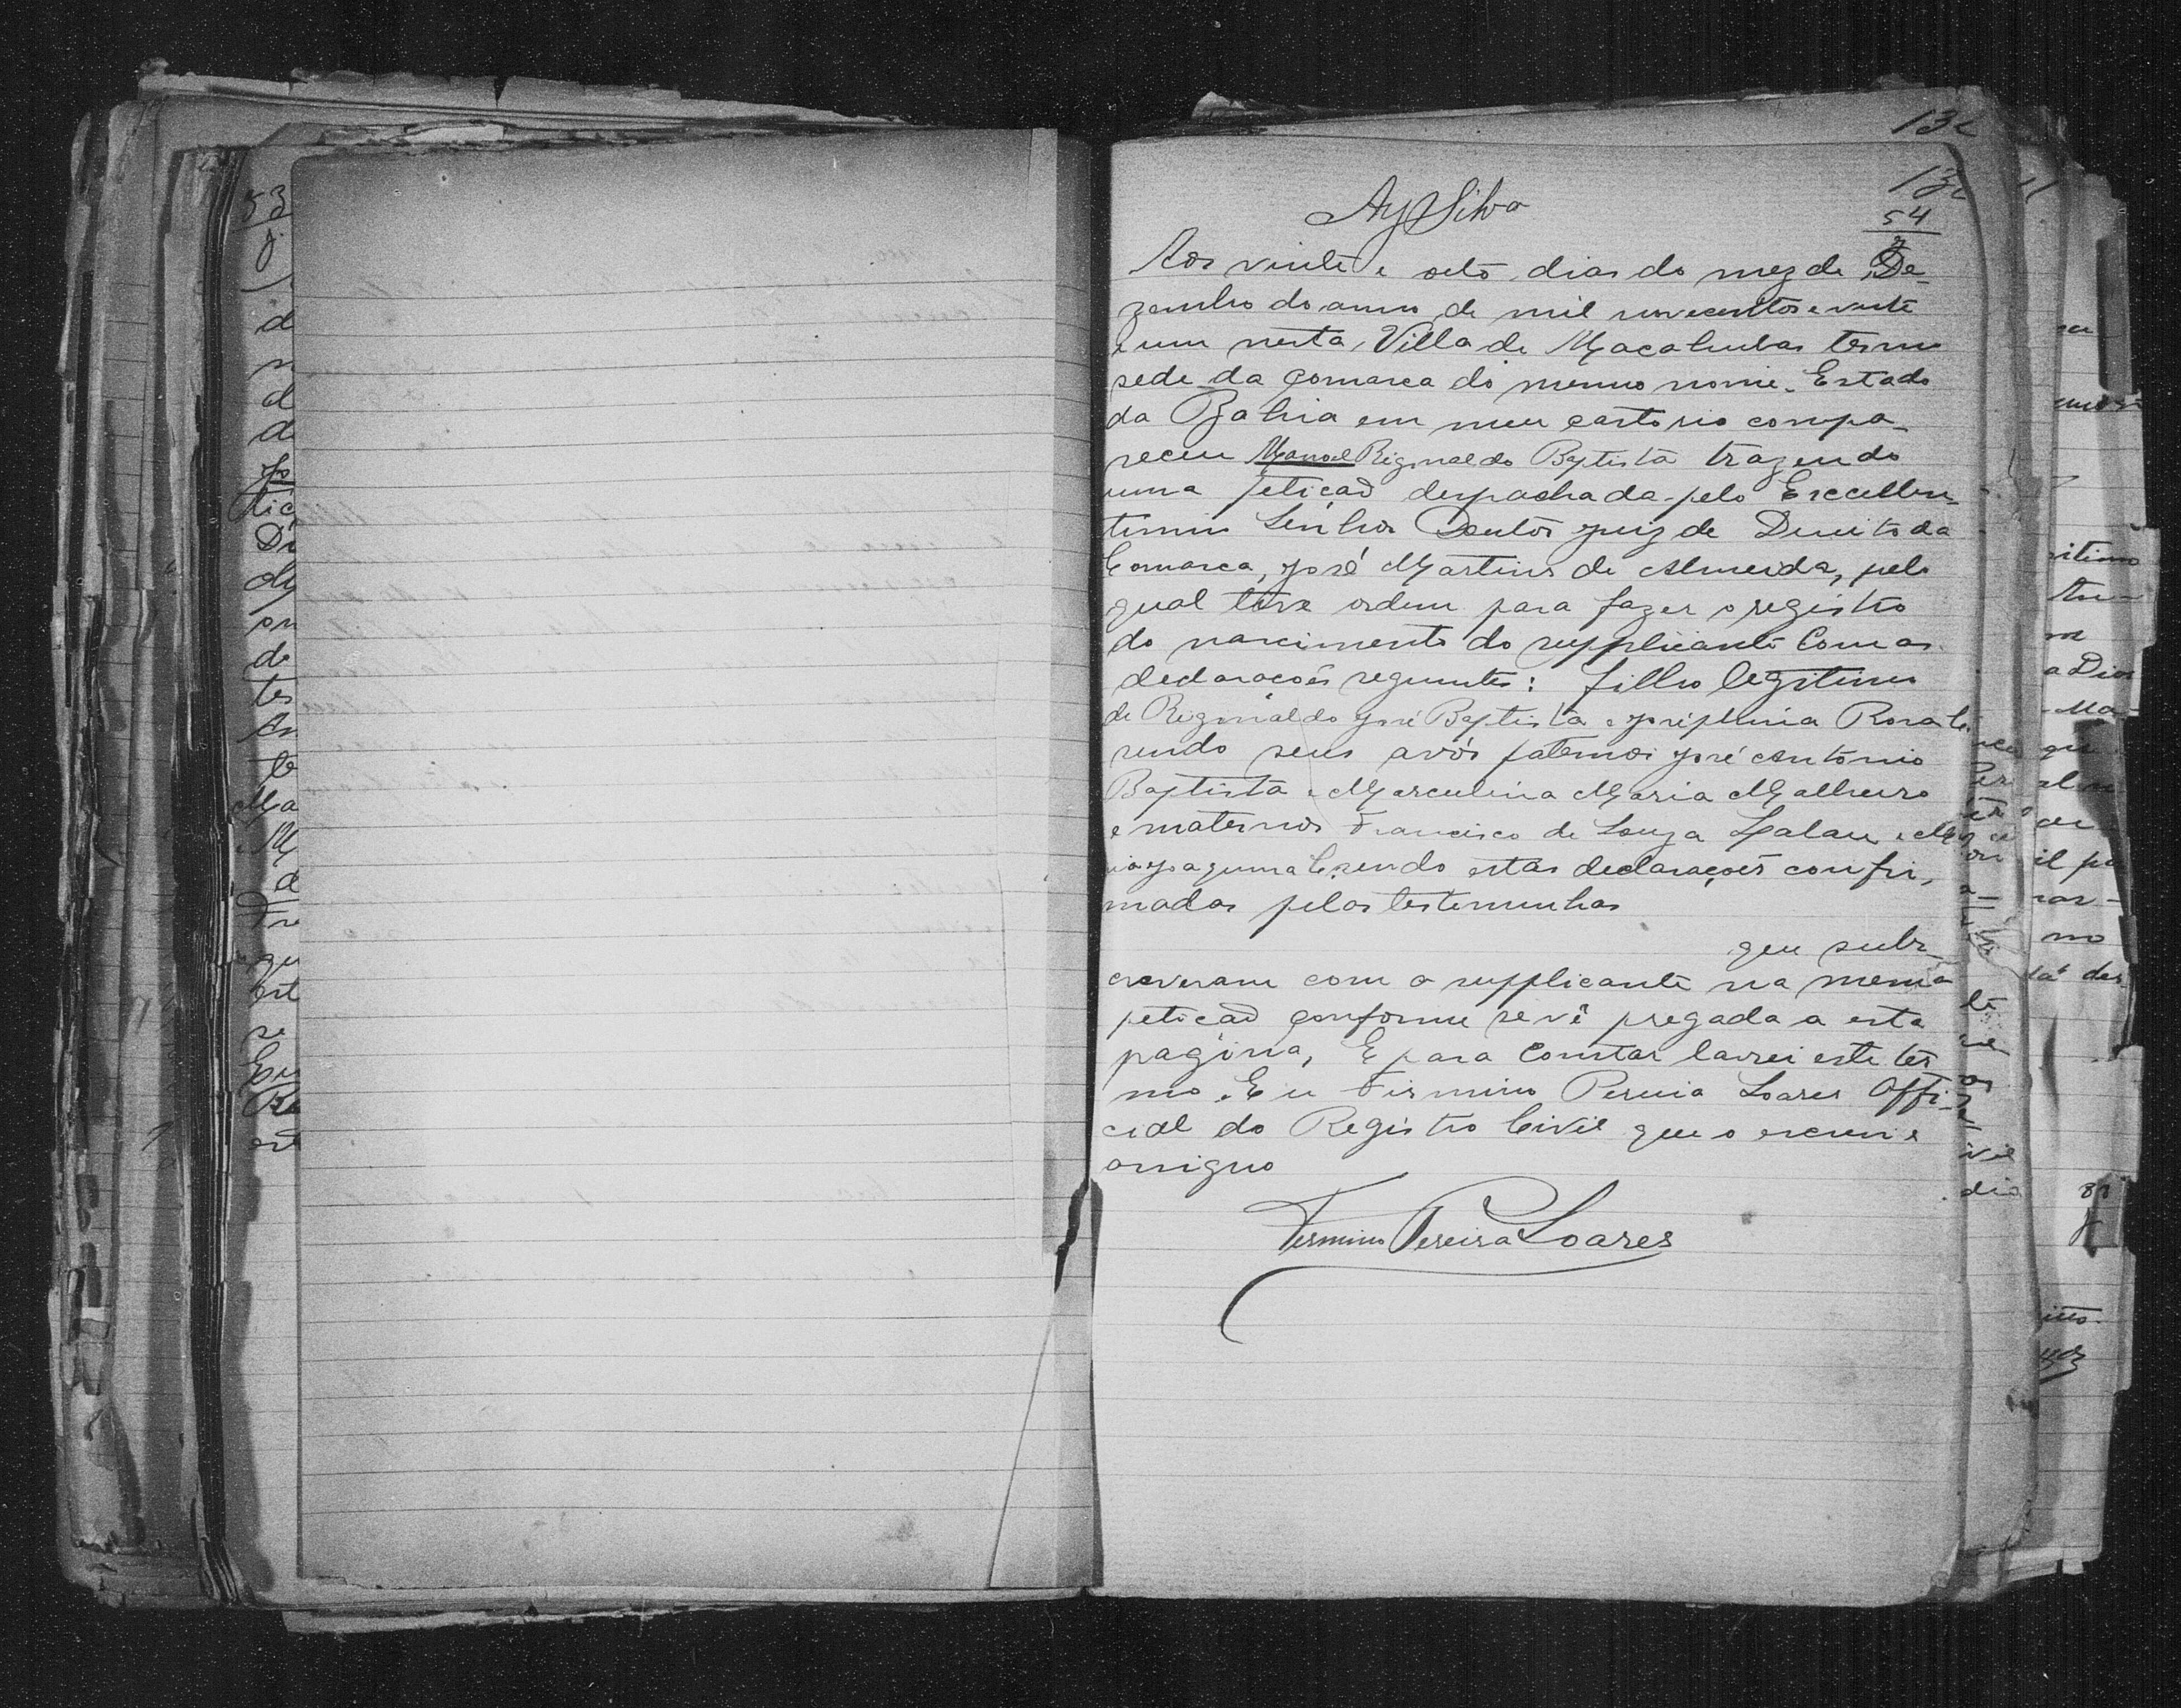 132
132
54
AySilva
Aos vinte e oito dias do mez de De-
zembro do anno de mil novecentos e vinte
e um nesta Villa de Macahubas termo
sede da Comarca do mesmo nome. Estado
da Bahia em meu cartorio compa-
receu Manoel Riginaldo Baptista trazendo
uma petição despachada pelo Excellen-
timo Senhor Doutor Juiz de Direito da
Comarca, José Martins de Almeida, pelo
qual teve ordem para fazer o registro
do nascimento do supplicante com as
declarações seguintes: filho legitimo
de Riginaldo José Baptista e Josiphina Rosa
sendo seus avós paternos José Antonio
Baptista e Marculina Maria Malheiro
e maternos Francisco de Souza Lalau e Ma
ria Joaquina E sendo estas declarações confir,
madas pelas testemunhas
que subs-
creveram com o supplicante na mesma
petição conforme se vê pregada a esta
pagina, E para constar lavrei este ter
mo. Eu Firmino Pereira Soares Offi-
cial do Registro Civil que o escrevi e
assigno
Firmino Pereira Soares